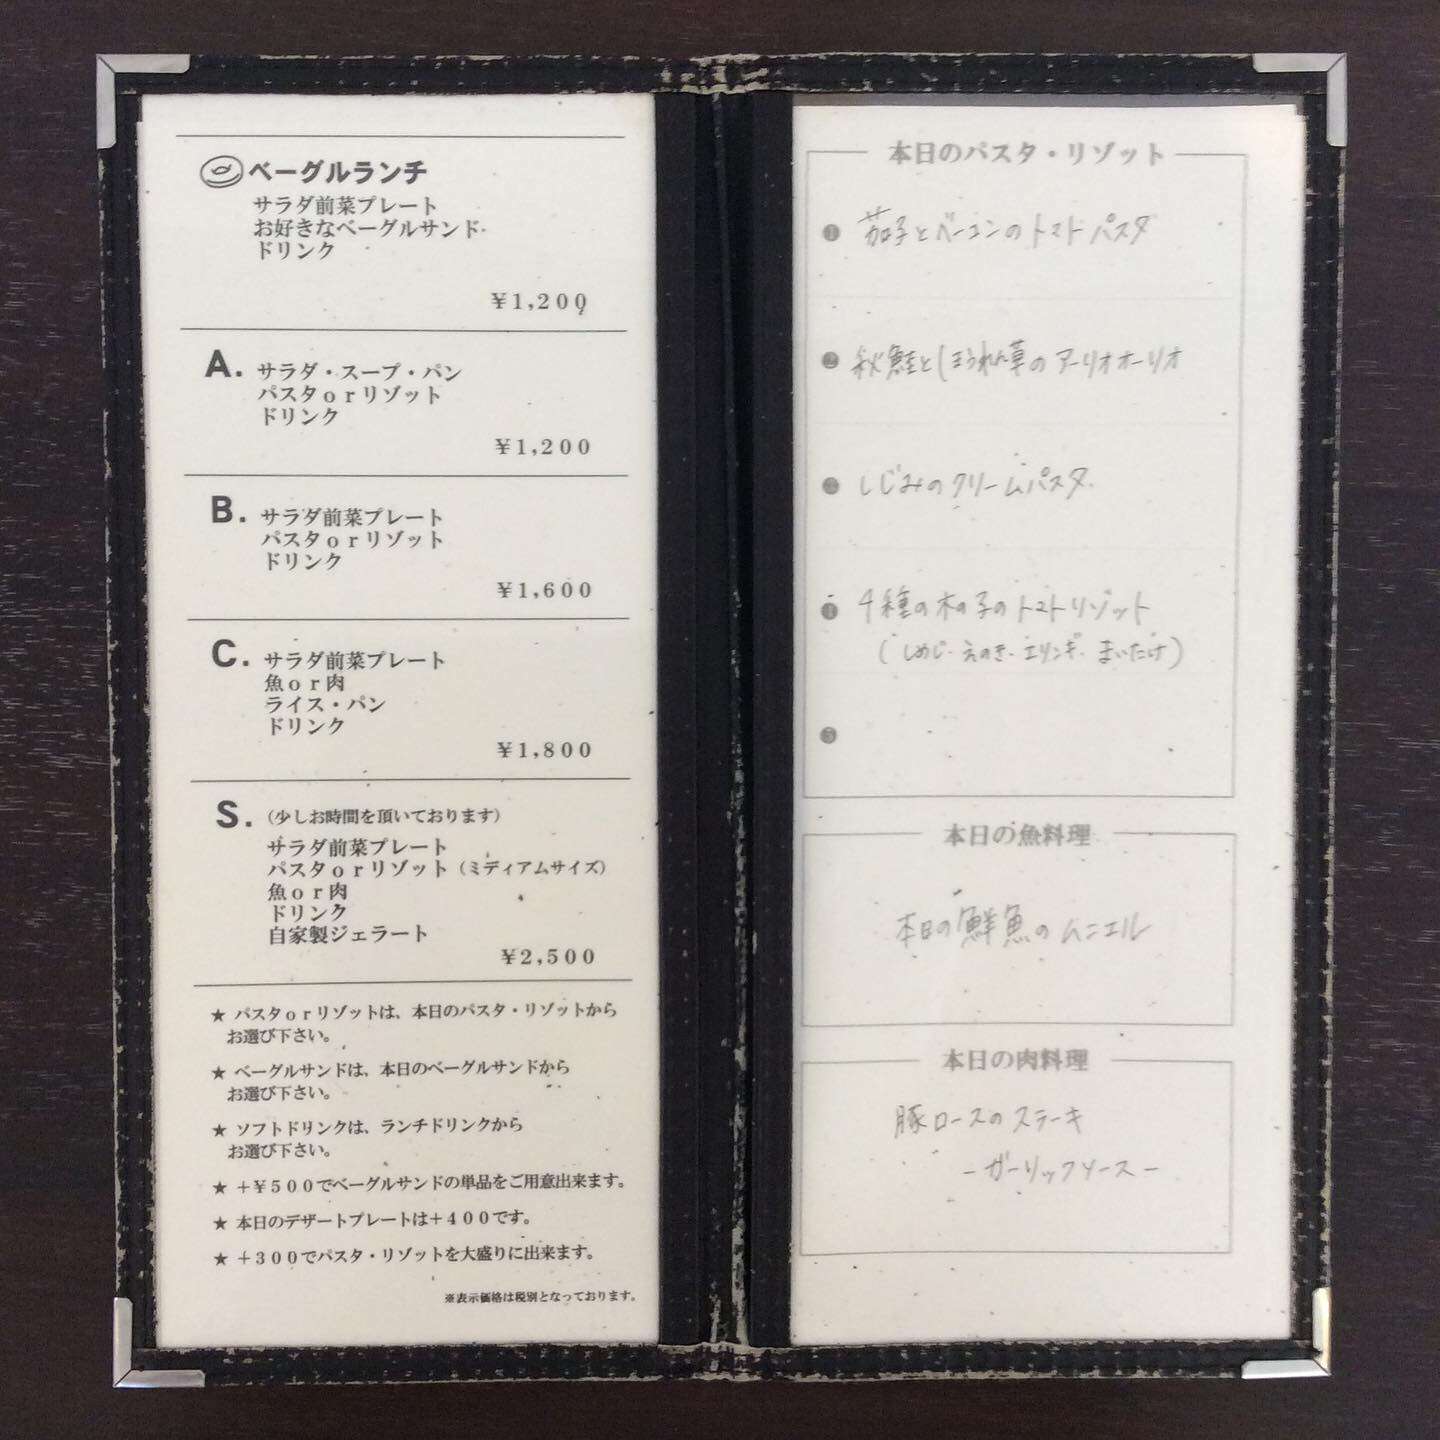 ベーグルランチ
サラダ前菜プレート
お好きなベーグルサンド
ドリンク
¥1,200
A. サラダ・スープ・パン
パスタorリゾット
ドリンク
¥1,200
B. サラダ前菜プレート
パスタorリゾット
ドリンク
¥1,600
C. サラダ前菜プレート
魚or肉
ライス・パン
ドリンク
¥1,800
S. (少しお時間を頂いております)
サラダ前菜プレート
パスタorリゾット(ミディアムサイズ)
魚or肉
ドリンク
自家製ジェラート
¥2,500
★ パスタorリゾットは、本日のパスタ・リゾットから
お選び下さい。
★ ベーグルサンドは、本日のベーグルサンドから
お選び下さい。
★ ソフトドリンクは、ランチドリンクから
お選び下さい。
★ +¥500でベーグルサンドの単品をご用意出来ます。
★ 本日のデザートプレートは+400です。
★ +300でパスタ・リゾットを大盛りに出来ます。
※表示価格は税別となっております。
本日のパスタ・リゾット
❶ 茄子とベーコンのトマトパスタ
❷ 秋鮭とほうれん草のアーリオオーリオ
❸ しじみのクリームパスタ
❹ 4種の木の子のトマトリゾット
(しめじ・えのき・エリンギ・まいたけ)
❺
本日の魚料理
本日の鮮魚のムニエル
本日の肉料理
豚ロースのステーキ
-ガーリックソース-